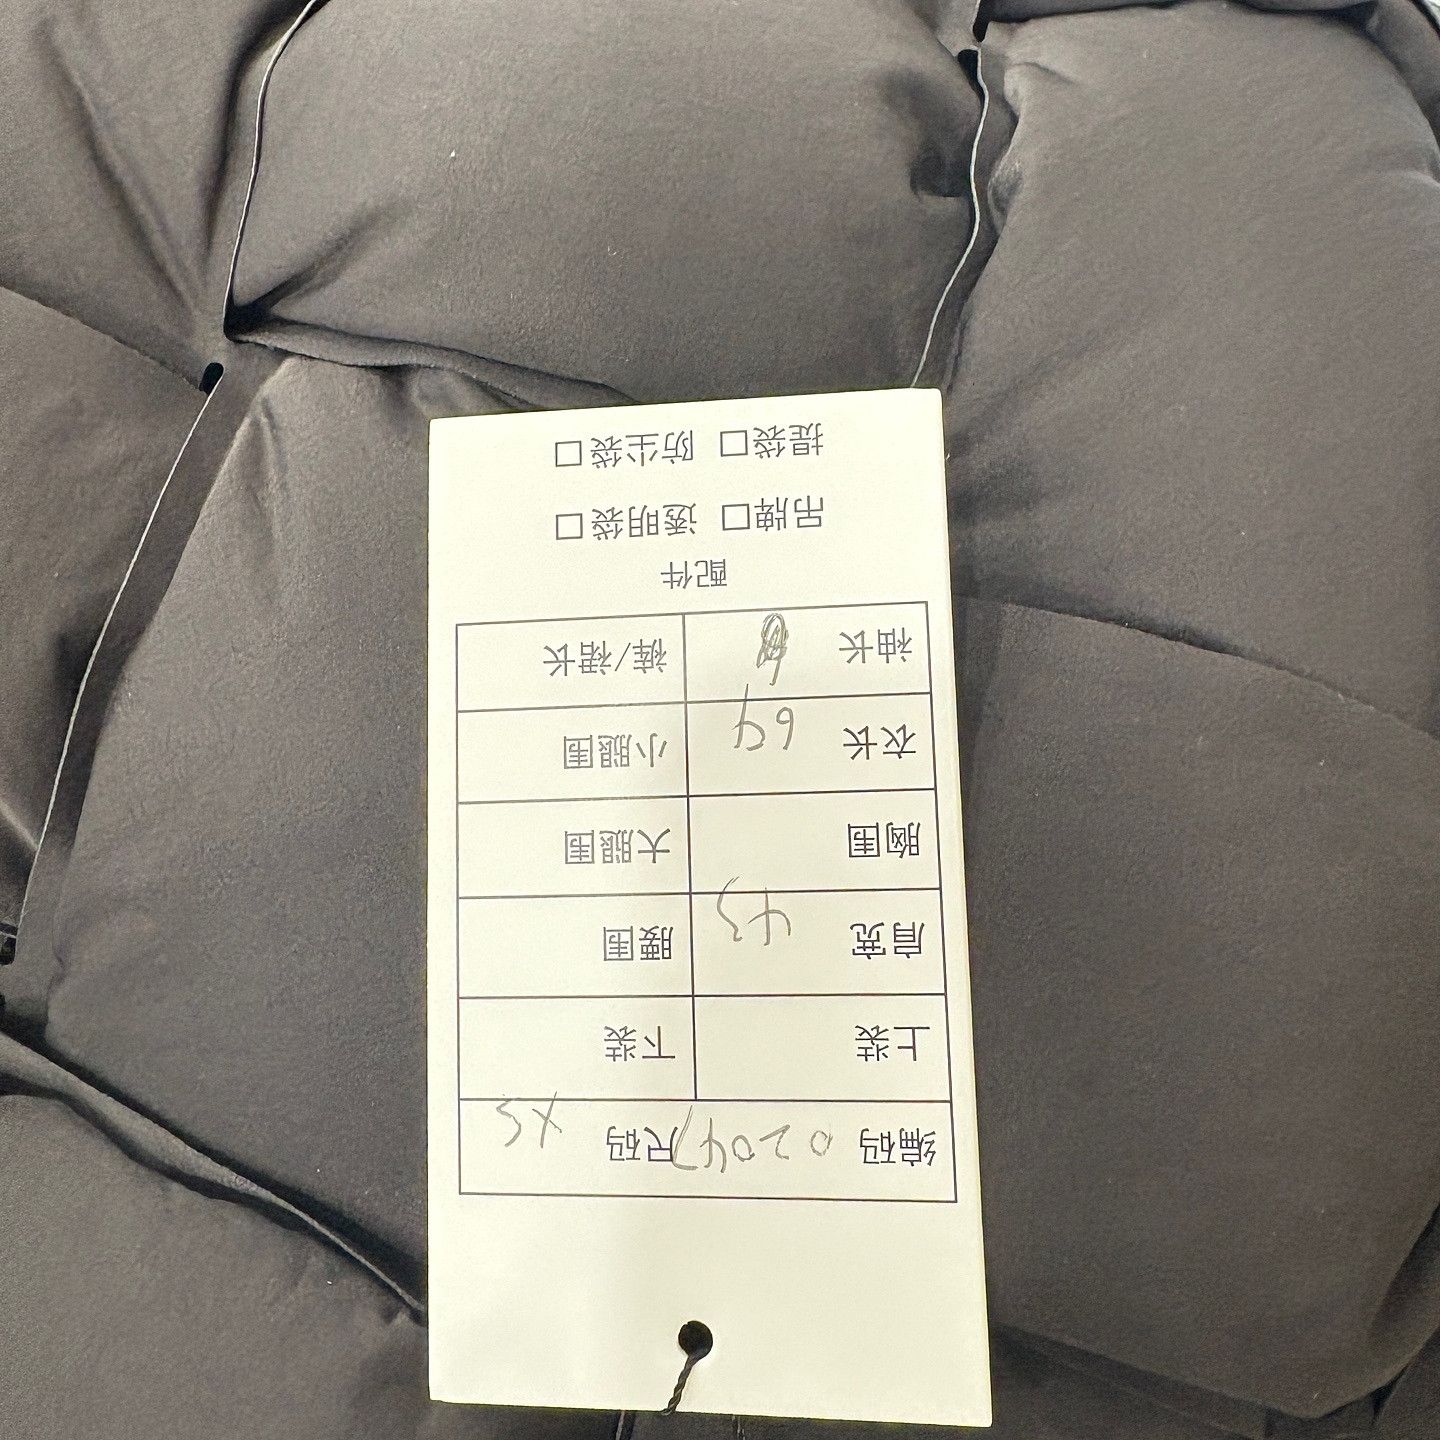 编码 02047 尺码 XS
上装 下装
肩宽 43 腰围
胸围 大腿围
衣长 64 小腿围
袖长 裤/裙长
配件
吊牌□ 透明袋□
提袋□ 防尘袋□